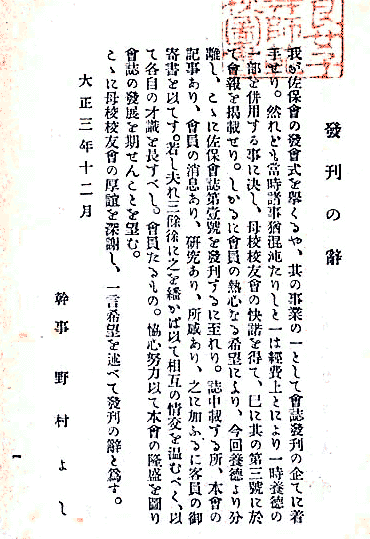 發刊の辭
我が佐保會の發會式を擧ぐるや、其の事業の一として會誌發刊の企てに着
手せり。然れども當時諸事猶混沌たりしと一は經費上とにより一時養德の
一部を併用する事に決し、母校校友會の快諾を得て、已に其の第三號に於
て會報を掲載せり。しかるに會員の熱心なる希望により、今回養德より分
離し、こゝに佐保會誌第壹號を發刊するに至れり。誌中載する所、本會の
記事あり、會員の消息あり、研究あり、所感あり、之に加ふるに客員の御
寄書を以てす。若し夫れ三餘徐に之を繙かば以て相互の情交を溫むべく、以
て各自の才識を長すべし。會員たるもの。協心努力以て本會の隆盛を圖り
會誌の發展を期せんことを望む。
こゝに母校校友會の厚誼を深謝し、一言希望を述べて發刊の辭と爲す。
大正三年十二月
幹事 野村よし
一